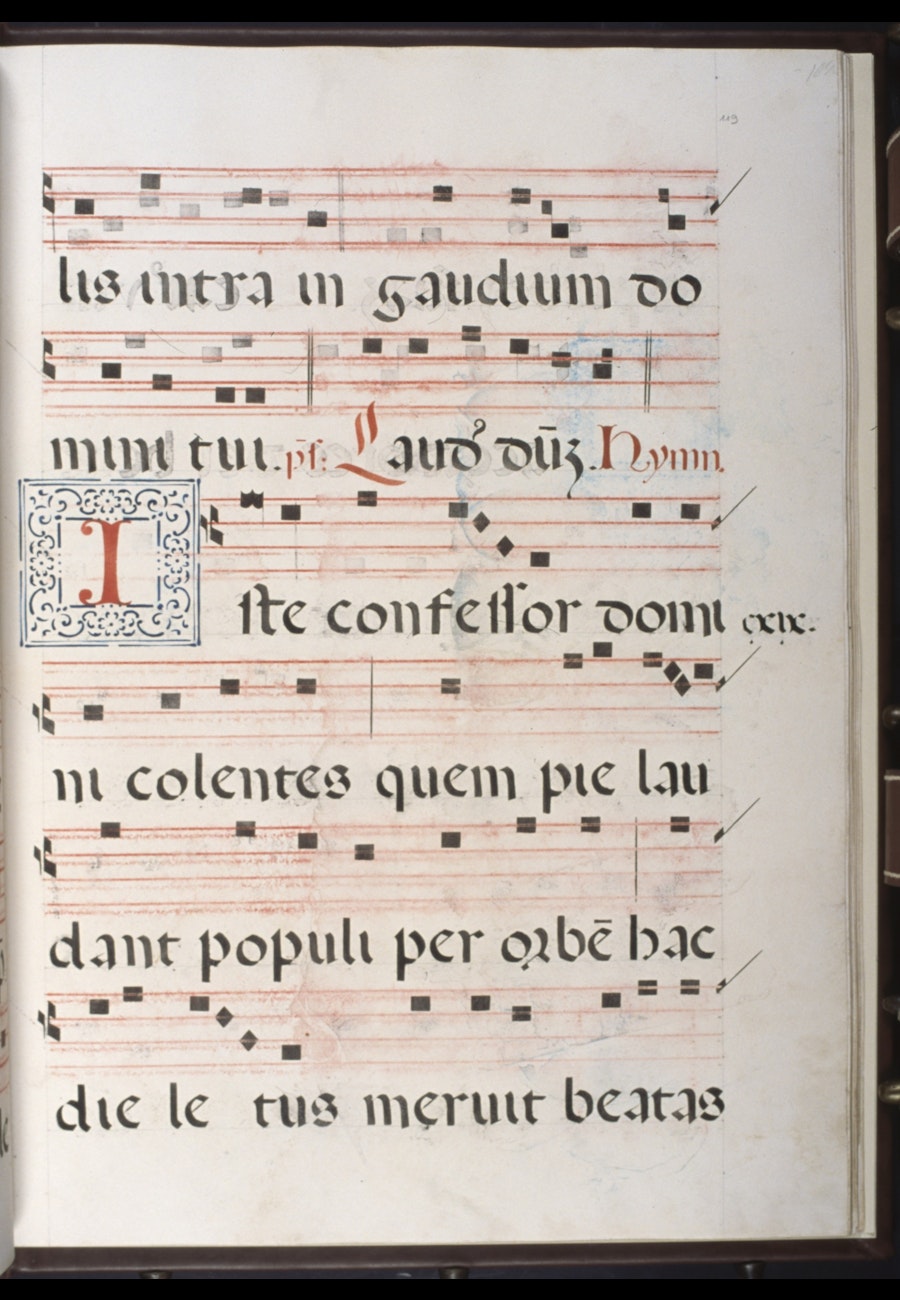 119
lis intra in gaudium do
mini tui. ps̄: Laudꝰ dūꝫ. Hymn.
Iste confessor domi cxix.
ni colentes quem pie lau
dant populi per orbē hac
die le tus meruit beatas